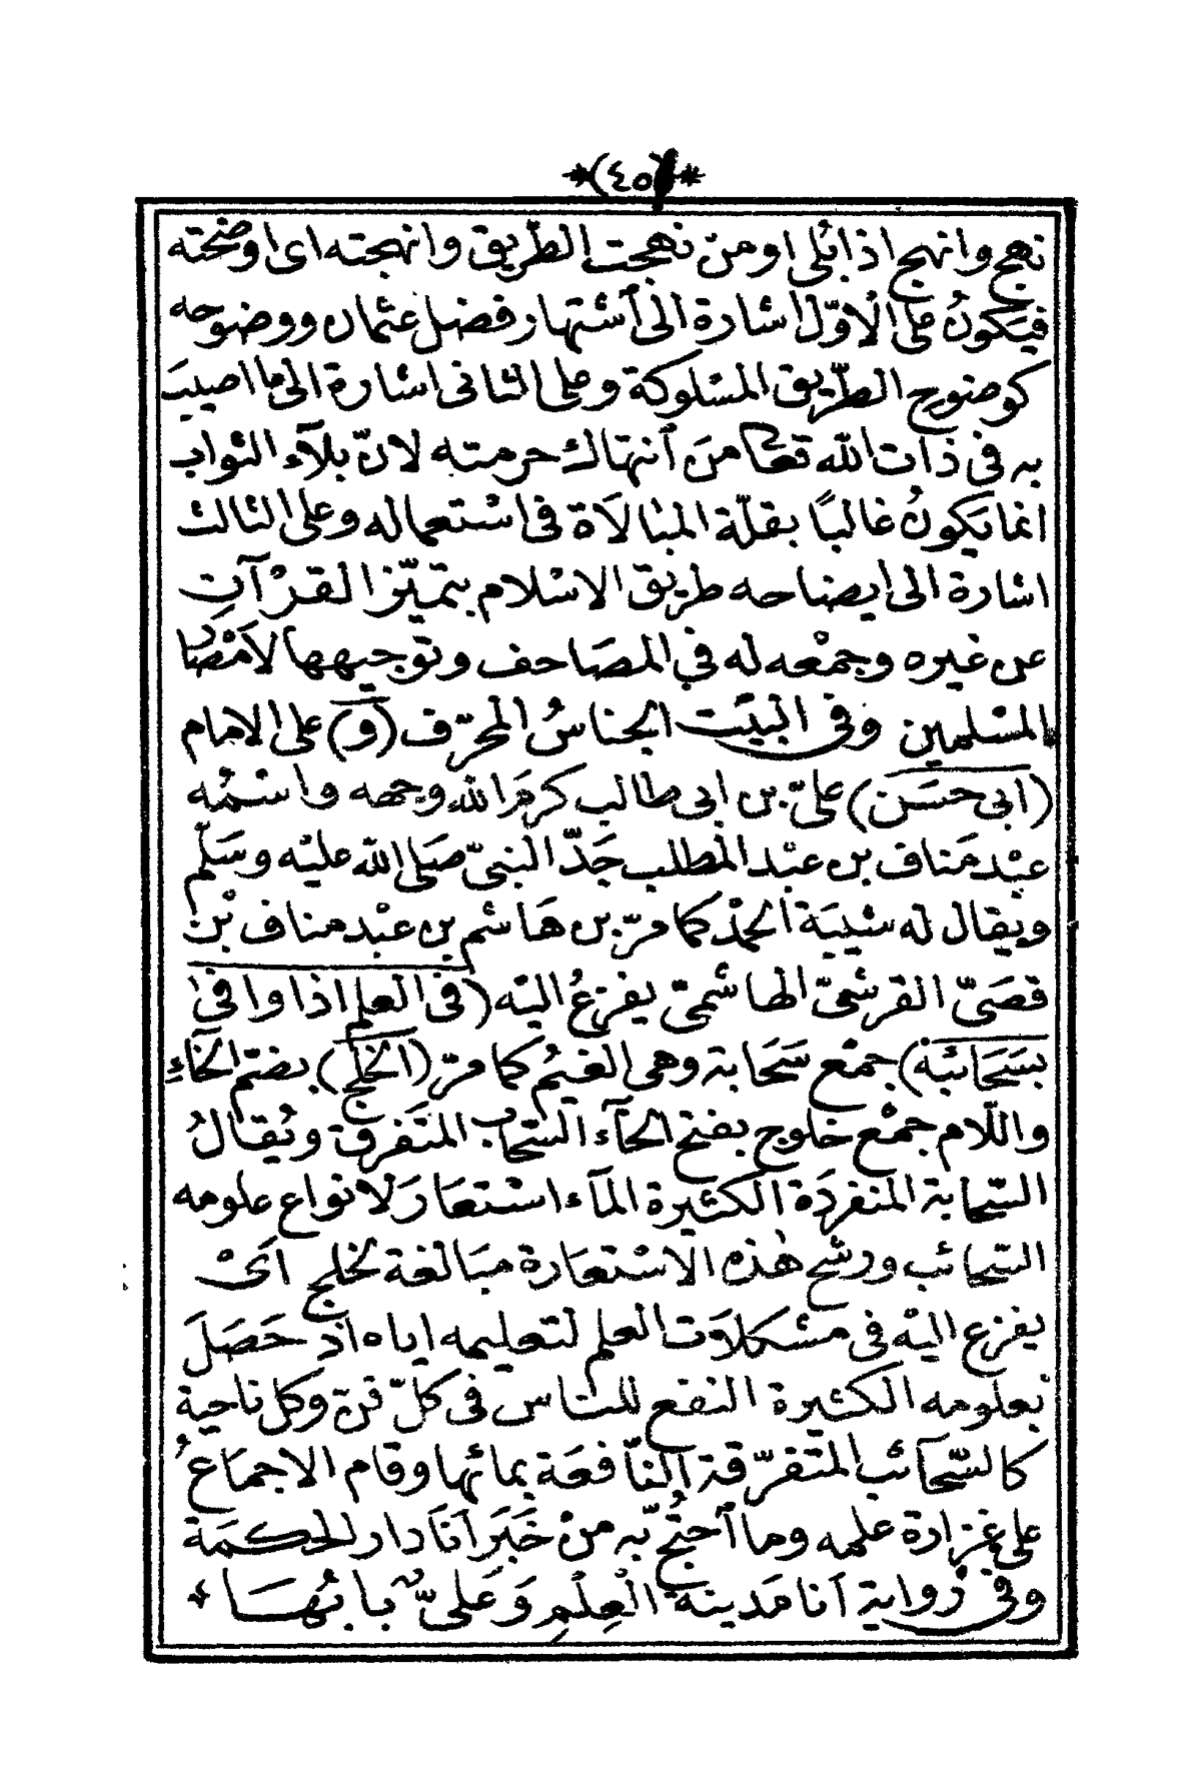 *(٤٥)*
نهج وانهج اذا بُلى او منْ نهجت الطّريق وانهجته اى اوضحته
فيَكونُ على الْاوّل اشارة الىٰ ٱشْتهار فضل عثمان ووضوحه
كوضوح الطّريق المسْلوكة وعلى الثانى اشارة الى ما اصيبَ
به فى ذات اللّه تعالى منَ ٱنتهاك حرمته لانّ بلآء الثواب
انما يَكونُ غالبًا بقلّة المبالَاة فى اسْتعماله وعلى الثالث
اشارة الى ايضاحه طريق الاسْلام بتميّز القرْآنِ
عن غيره وجمْعه له في المصَاحف وتوجيهها لاَمْصار
المسْلمين وفى البيَت الجناسُ المحرّف (و) على الامام
(ابى حسَن) علىّ بن ابى طالب كرمَ الله وجهه واسْمُه
عبْد مَناف بن عبْد المطلب جَدّ النبىّ صَلى اللّه عليْه وسَلّم
ويُقال له شيْبَة الحمْد كما مرّ بن هَاشم بن عبْد مناف بْن
قصَىّ القرشىّ الهاشمىّ يفزعُ اليْه (فى العلم اذا وافىٰ
بسَحَائبْه) جمْع سَحَابة وهى الغيْم كما مرّ (الخلج) بضمّ الخاءِ
واللّام جمْع خلوج بفتح الخآء السّحاب المتَفرق ويُقالُ
السّحابة المنفردَة الكثيرة المآء اسْتعَارَ لانواع علومه
السّحائب ورشح هٰذه الاسْتعَارة مبَالغة بخلج اَىْ
يفزع اليْه فى مشكلاَت العلم لتعليمه اياه اذْ حَصَلَ
بعلومه الكثيرة النفع للنّاس فى كلّ فن وكل ناحية
كالسّحآئب المتفرّقة النّافعَة بمائها وقام الاجماعُ
على غزارة علمه وما ٱحتُجّ به منْ خَبَر اَنَا دار الحكمَة
وفى رْواية اَنا مَدينة العِلْمِ وَعَلىّ بابُهَا